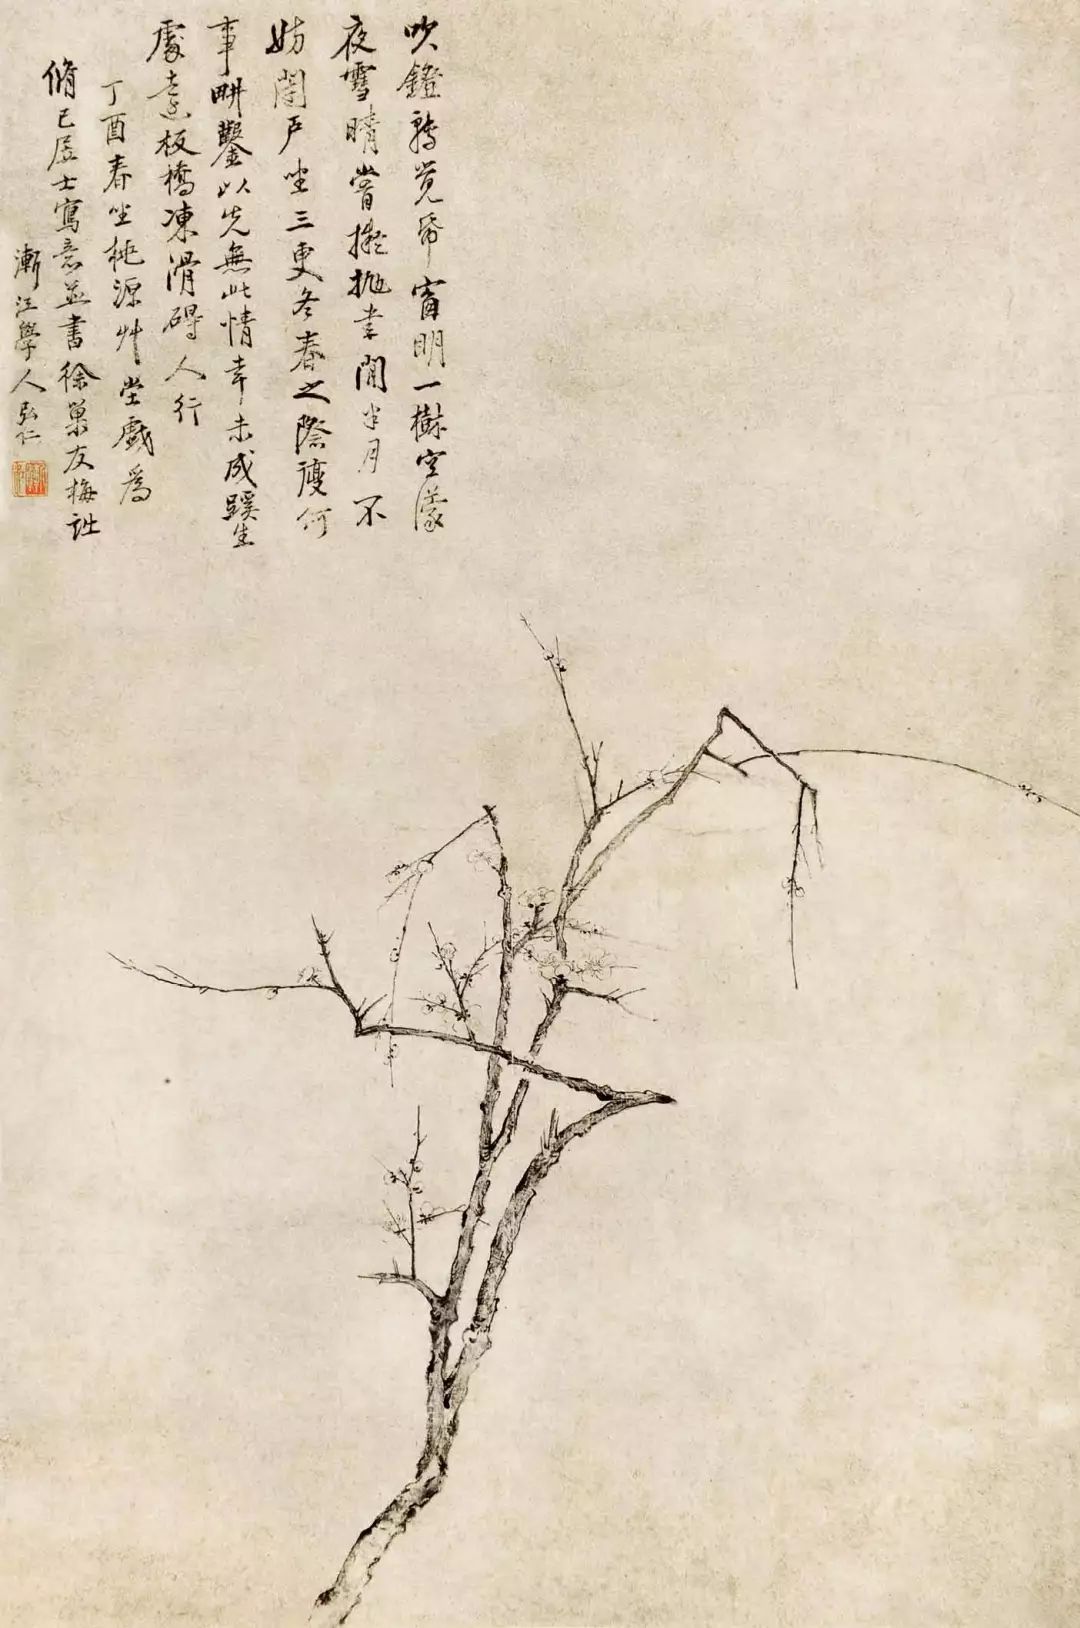 吹鐙轉覺帋窗明一樹空濛
夜雪晴嘗擬抛書閒半月不
妨閉戶坐三更冬春之際復何
事畊鑿以先無此情幸未成蹊生
處素板橋凍滑碍人行
丁酉春坐桃源艸堂戲為
脩己居士寫意並書徐巢友梅詠
漸江學人弘仁